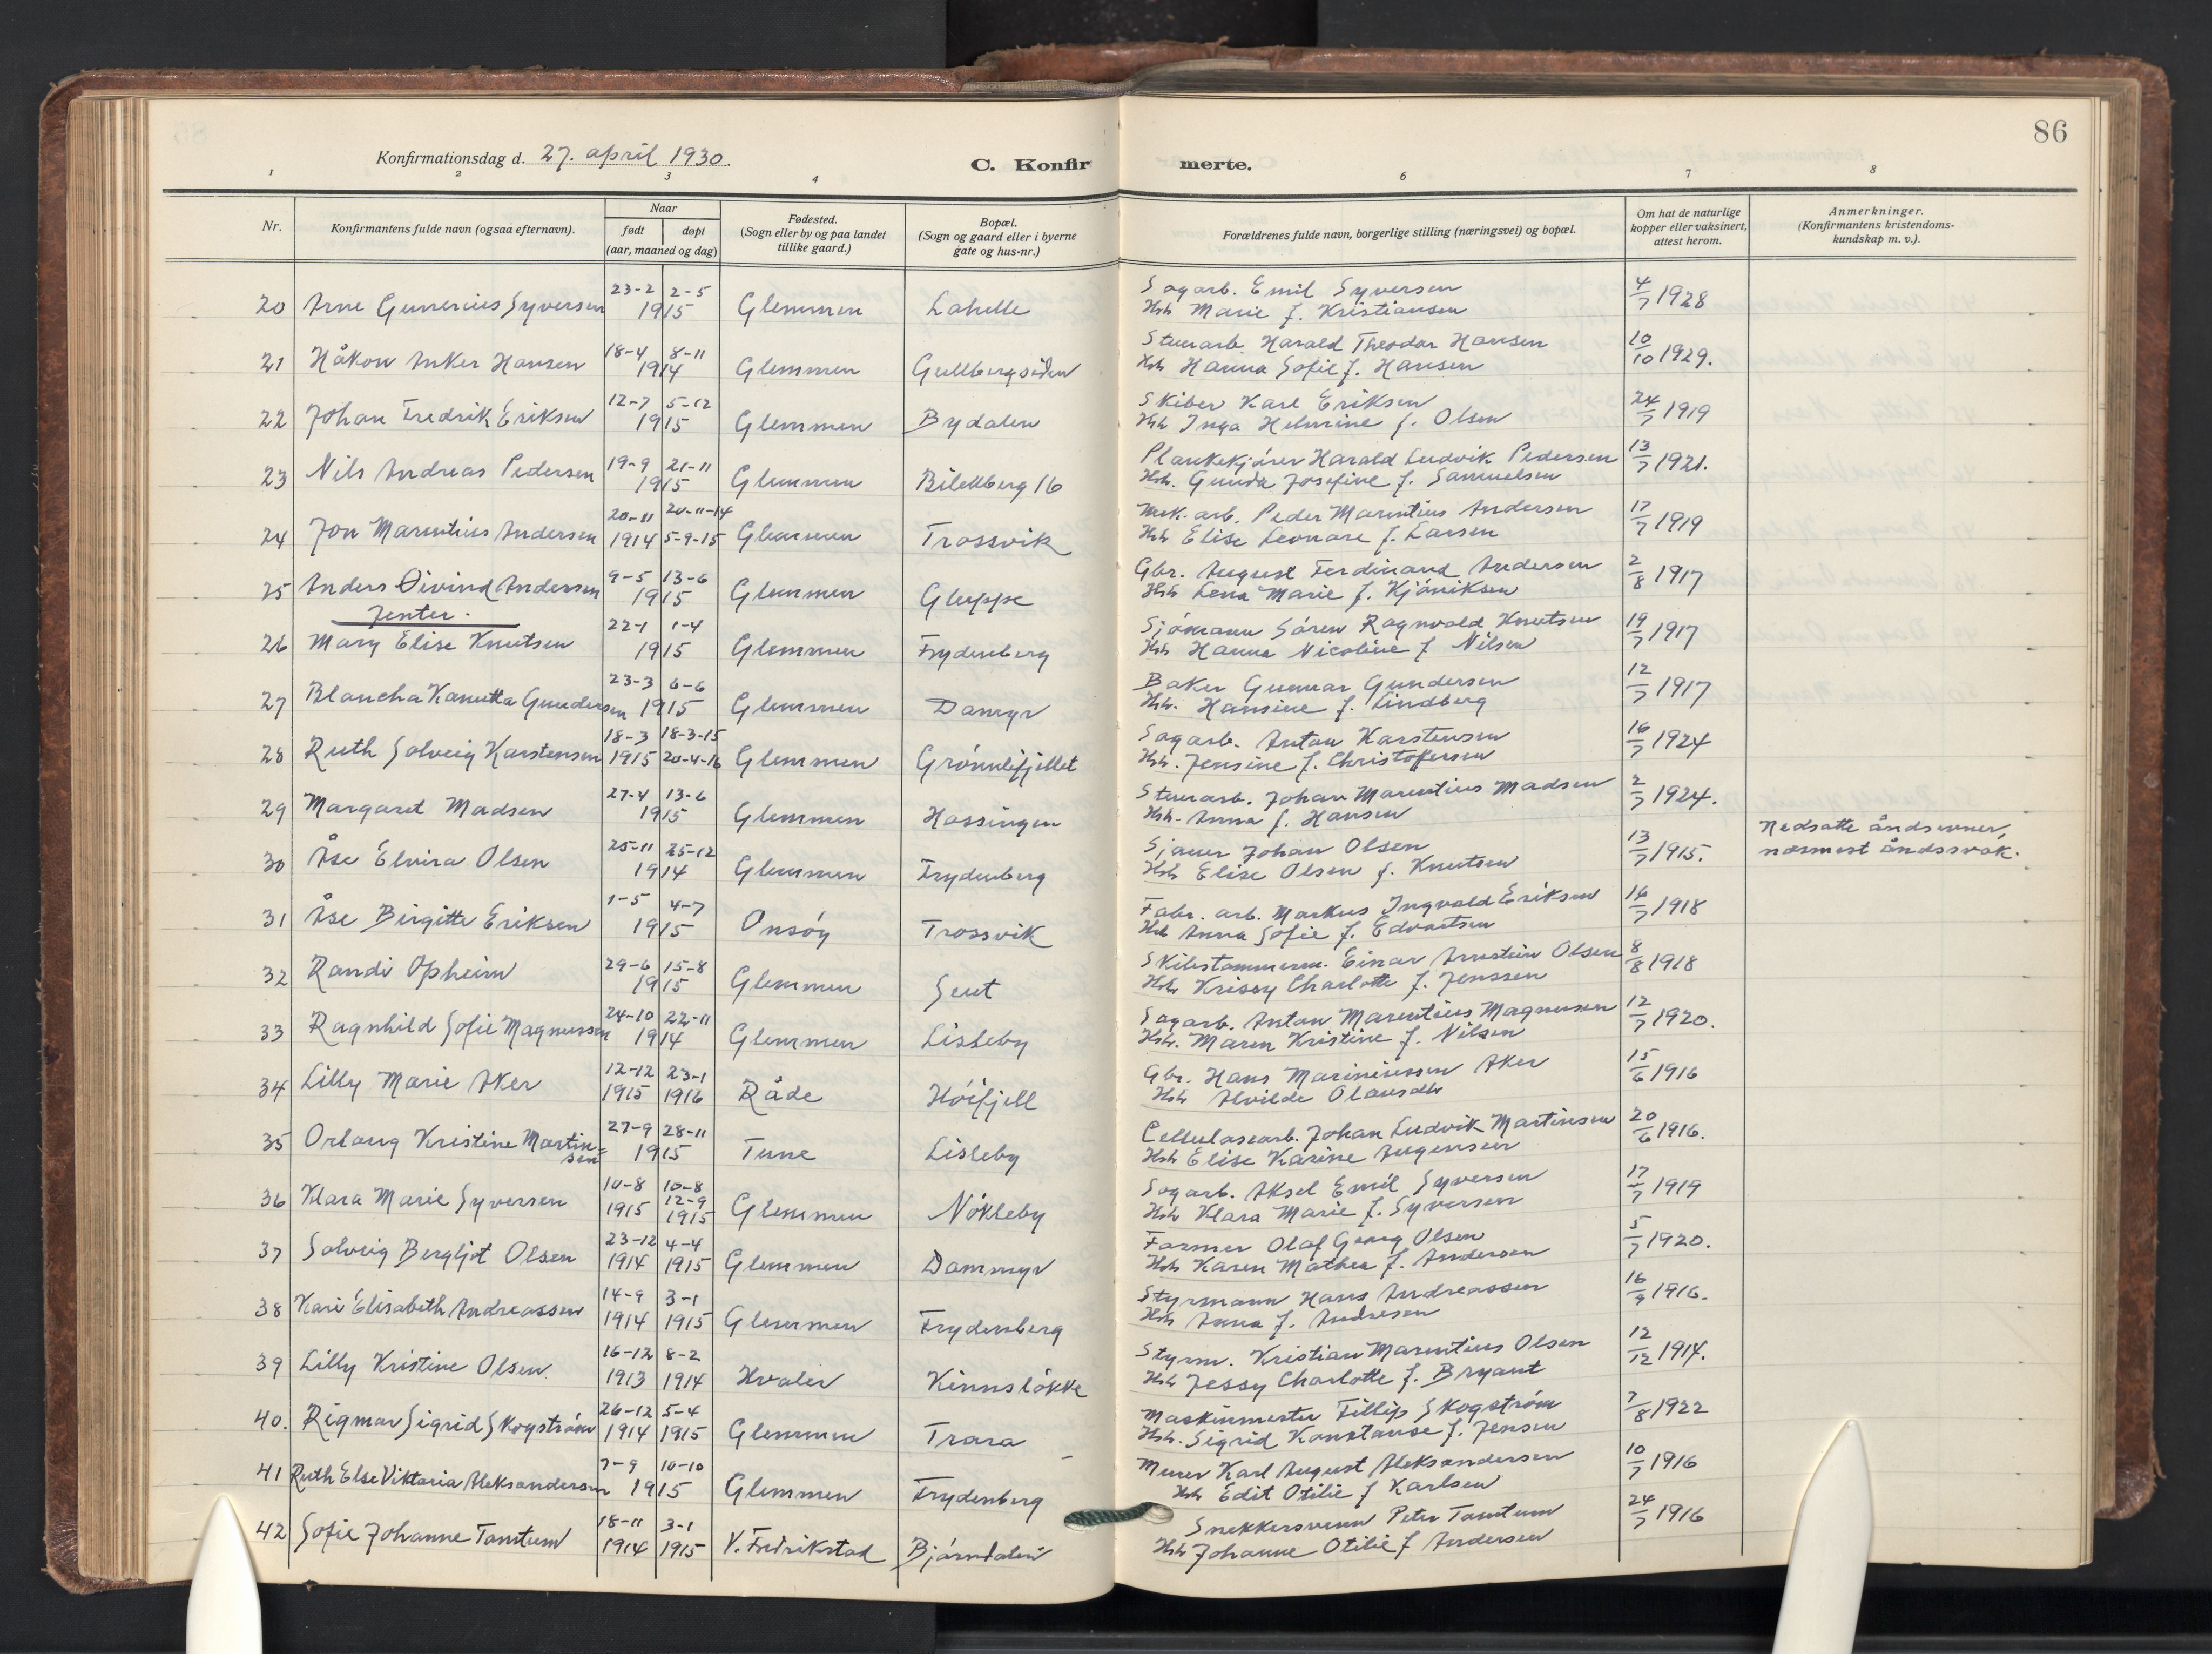 86
Konfirmationsdag d. 27. april 1930.
C. Konfirmerte.
1 2 3 4 6 7 8
Nr.
Konfirmantens fulde navn (ogsaa efternavn).
Naar
født døpt
(aar, maaned og dag)
Fødested.
(Sogn eller by og paa landet
tillike gaard.)
Bopæl.
(Sogn og gaard eller i byerne
gate og hus-nr.)
Forældrenes fulde navn, borgerlige stilling (næringsvei) og bopæl.
Om hat de naturlige
kopper eller vaksinert,
attest herom.
Anmerkninger.
(Konfirmantens kristendoms-
kundskap m. v.).
20 Arne Gunerius Syversen 23-2 2-5 1915 Glemmen Lahelle Sagarb. Emil Syversen 4/7 1928
Hst Marie f. Kristiansen
21 Håkon Anker Hansen 18-4 8-11 1914 Glemmen Gullbergsiden Stuerarb. Harald Theodor Hansen 10/10 1929.
Hst Hanna Sofie f. Hansen
22 Johan Fredrik Eriksen 12-7 5-12 1915 Glemmen Bydalen Skiber Karl Eriksen 24/7 1919
Hst Inga Helmine f. Olsen
23 Nils Andreas Pedersen 19-9 21-11 1915 Glemmen Bilekberg 16 Plankekjører Harald Ludvik Pedersen 13/7 1921.
Hst. Gunda Josefine f. Samuelsen
24 Jon Marentius Andersen 20-11 1914 20-11-14 5-9-15 Glemmen Trossvik Mek. arb. Peder Marentius Andersen 17/7 1919
Hst Elise Leonare f. Larsen
25 Anders Øivind Andersen 9-5 13-6 1915 Glemmen Gluppe Gbr. August Ferdinand Andersen 2/8 1917
Hst Lena Marie f. Kjöniksen
Jenter.
26 Mary Elise Knutsen 22-1 1-4 1915 Glemmen Frydenberg Sjömann Sören Ragnvald Knutsen 19/7 1917
Hst Hanna Nicoline f Nilsen
27 Blancha Kanutta Gundersen 23-3 6-6 1915 Glemmen Damyr Baker Gunnar Gundersen 12/7 1917
Hst. Hansine f. Lindberg
28 Ruth Solveig Karstensen 18-3 1915 18-3-15 20-4-16 Glemmen Grönnlifjellet Sagarb. Anton Karstensen 16/7 1924
Hst. Jensine f. Christoffersen
29 Margaret Madsen 27-4 13-6 1915 Glemmen Hassingen Stuerarb. Johan Marentius Madsen 2/7 1924.
Hst. Anna f. Hansen
30 Åse Elvira Olsen 25-11 25-12 1914 Glemmen Frydenberg Sjauer Johan Olsen 13/7 1915. Nedsatte åndsevner,
Hst Elise Olsen f. Knutsen nærmest åndssvak.
31 Åse Birgitte Eriksen 1-5 4-7 1915 Onsöy Trossvik Fabr. arb. Markus Ingvald Eriksen 16/7 1918
Hst Anna Sofie f. Edvartsen
32 Randi Opheim 29-6 15-8 1915 Glemmen Seut Skibstømmerm. Einar Arnstein Olsen 8/8 1918
Hst Krissy Charlotte f. Jenssen
33 Ragnhild Sofie Magnussen 24-10 22-11 1914 Glemmen Lisleby Sagarb. Anton Marentius Magnussen 12/7 1920.
Hst. Maren Kristine f. Nilsen
34 Lilly Marie Aker 12-12 1915 23-1 1916 Råde Höifjell Gbr. Hans Marinussen Aker 15/6 1916
Hst Alvilde Olausdtr
35 Orlaug Kristine Martin=
sen 27-9 28-11 1915 Tune Lisleby Cellulosearb. Johan Ludvik Martinsen 20/6 1916.
Hst Elise Karine Jugensen
36 Klara Marie Syversen 10-8 1915 10-8 12-9 1915 Glemmen Nökleby Sagarb. Aksel Emil Syversen 17/7 1919
Hst Klara Marie f. Syversen
37 Solveig Bergljot Olsen 23-12 1914 4-4 1915 Glemmen Dammyr Farmer Olaf Georg Olsen 5/7 1920.
Hst Karen Mathea f. Andersen
38 Kari Elisabeth Andreassen 14-9 1914 3-1 1915 Glemmen Frydenberg Styrmann Hans Andreassen 16/9 1916.
Hst Anna f. Andresen
39 Lilly Kristine Olsen 16-12 1913 8-2 1914 Hvaler Kinnslökke Styrm. Kristian Marentius Olsen 12/12 1914.
Hst Jessy Charlotte f. Bryant
40. Rigmar Sigrid Skogström 26-12 1914 5-4 1915 Glemmen Trara Maskinmester Fillip Skogström 7/8 1922
Hst. Sigrid Konstanse f. Jensen
41 Ruth Else Viktoria Aleksandersen 7-9 10-10 1915 Glemmen Frydenberg Murer Karl August Aleksandersen 10/7 1916
Hst Edit Otilie f Karlsen
42 Sofie Johanne Tamtum 18-11 1914 3-1 1915 V. Fredrikstad Bjørndalen Snekkersvenn Peter Tamtum 24/7 1916
Hst Johanne Otilie f Andersen